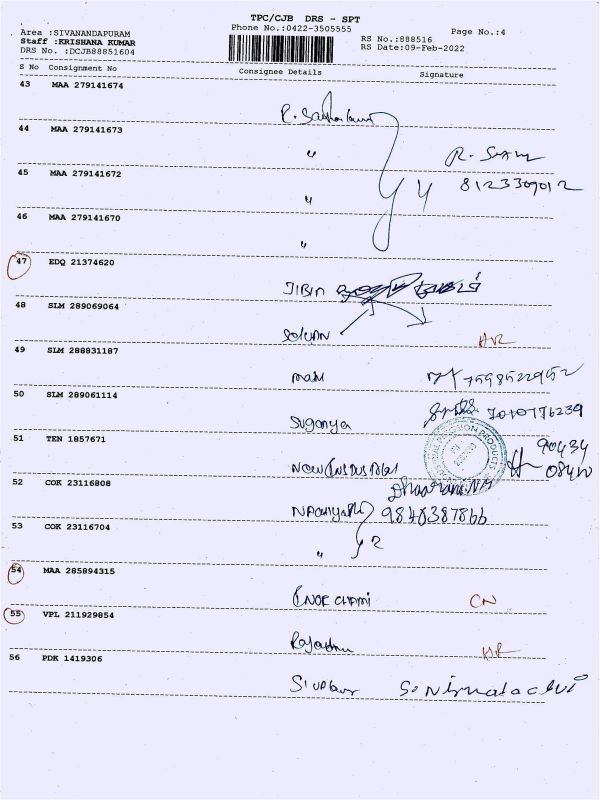 TPC/CJB DRS - SPT
Area :SIVANANDAPURAM Phone No.:0422-3505555 Page No.:4
Staff :KRISHANA KUMAR RS No.:888516
DRS No. :DCJB88851604 RS Date:09-Feb-2022
S No Consignment No Consignee Details Signature
43 MAA 279141674
44 MAA 279141673
"
45 MAA 279141672 8123309012
" 4 4
46 MAA 279141670
"
47 EDQ 21374620
JIBIN
48 SLM 289069064
HR
49 SLM 288831187
mani 7598522952
50 SLM 289061114
Suganya 7010776239
51 TEN 1857671
90434
08410
52 COK 23116808
9840387866
53 COK 23116704
" 2
54 MAA 285894315
CN
55 VPL 211929854
HR
56 PDK 1419306
S. Nirmala devi